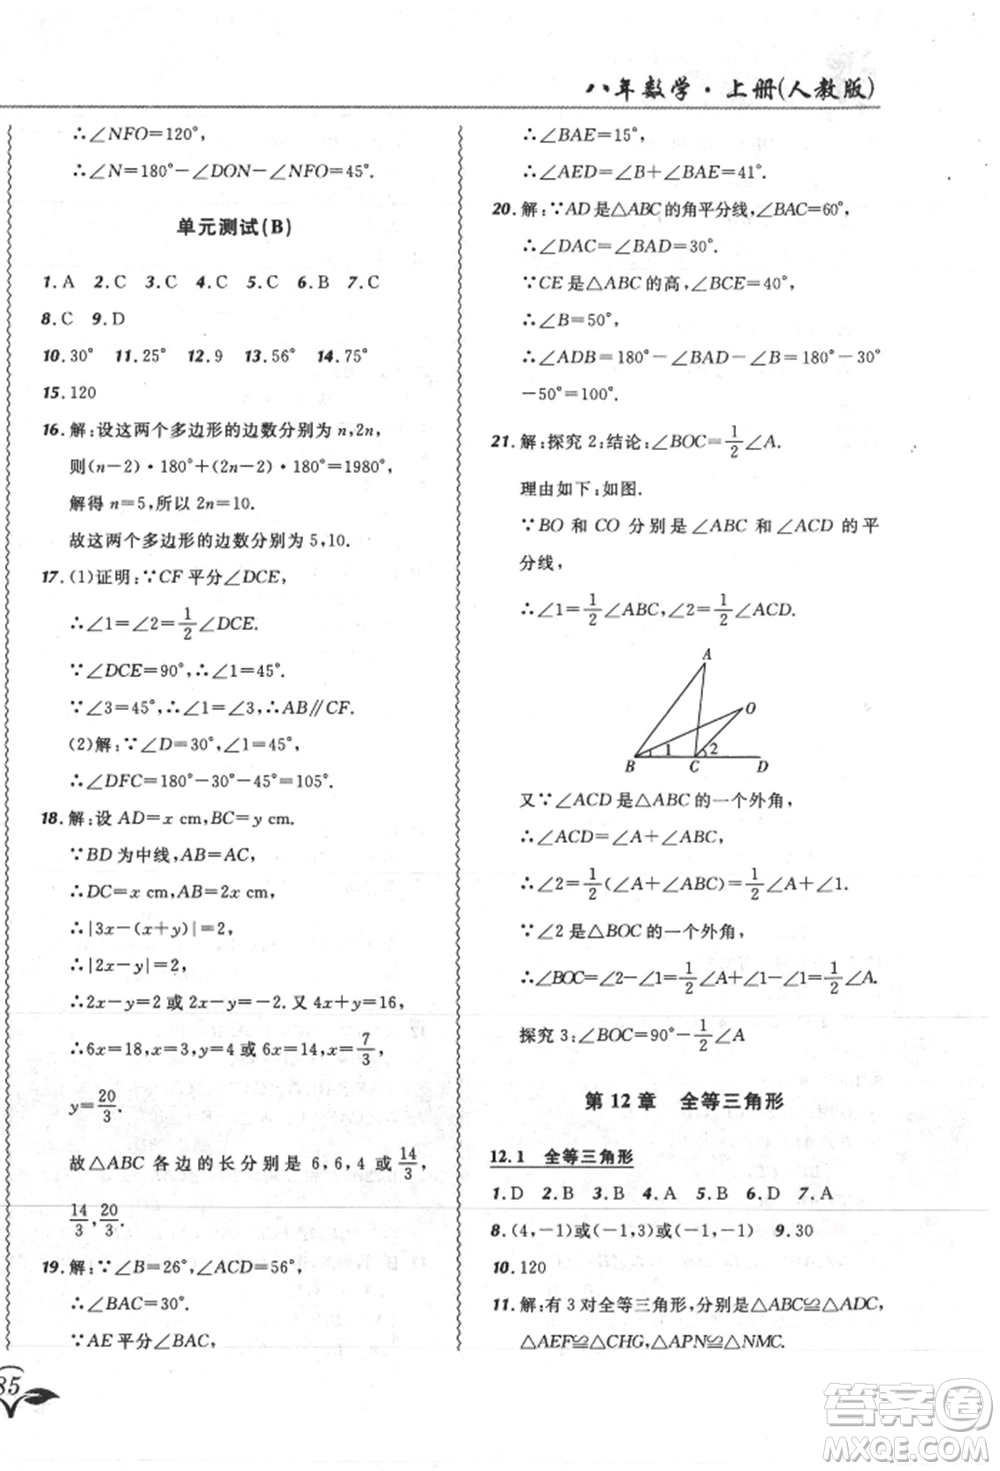 八年数学·上册(人教版)
∴∠NFO=120°,
∴∠N=180°-∠DON-∠NFO=45°.
单元测试(B)
1.A 2.C 3.C 4.C 5.C 6.B 7.C
8.C 9.D
10.30° 11.25° 12.9 13.56° 14.75°
15.120
16.解:设这两个多边形的边数分别为 n,2n,
则(n-2)·180°+(2n-2)·180°=1980°,
解得 n=5,所以 2n=10.
故这两个多边形的边数分别为 5,10.
17.(1)证明:∵CF 平分∠DCE,
∴∠1=∠2=1/2∠DCE.
∵∠DCE=90°,∴∠1=45°.
∵∠3=45°,∴∠1=∠3,∴AB∥CF.
(2)解:∵∠D=30°,∠1=45°,
∴∠DFC=180°-30°-45°=105°.
18.解:设 AD=x cm,BC=y cm.
∵BD 为中线,AB=AC,
∴DC=x cm,AB=2x cm,
∴|3x-(x+y)|=2,
∴|2x-y|=2,
∴2x-y=2 或 2x-y=-2.又4x+y=16,
∴6x=18,x=3,y=4 或 6x=14,x=7/3,
y=20/3.
故△ABC 各边的长分别是 6,6,4 或14/3,
14/3,20/3.
19.解:∵∠B=26°,∠ACD=56°,
∴∠BAC=30°.
∵AE 平分∠BAC,
85
∴∠BAE=15°,
∴∠AED=∠B+∠BAE=41°.
20.解:∵AD 是△ABC的角平分线,∠BAC=60°,
∴∠DAC=∠BAD=30°.
∵CE 是△ABC 的高,∠BCE=40°,
∴∠B=50°,
∴∠ADB=180°-∠BAD-∠B=180°-30°
-50°=100°.
21.解:探究 2:结论:∠BOC=1/2∠A.
理由如下:如图.
∵BO 和 CO 分别是∠ABC 和∠ACD 的平
分线,
∴∠1=1/2∠ABC,∠2=1/2∠ACD.
A
O
1 2
B C D
又∵∠ACD 是△ABC 的一个外角,
∴∠ACD=∠A+∠ABC,
∴∠2=1/2∠ACD=1/2∠A+∠1.
∵∠2 是△BOC 的一个外角,
∴∠BOC=∠2-∠1=1/2∠A+∠1-∠1=1/2∠A.
探究 3:∠BOC=90°-1/2∠A
第 12 章 全等三角形
12.1 全等三角形
1.D 2.B 3.B 4.A 5.B 6.D 7.A
8.(4,-1)或(-1,3)或(-1,-1) 9.30
10.120
11.解:有 3 对全等三角形,分别是△ABC≌△ADC,
△AEF≌△CHG,△APN≌△NMC.
答案圈
MXQE.COM